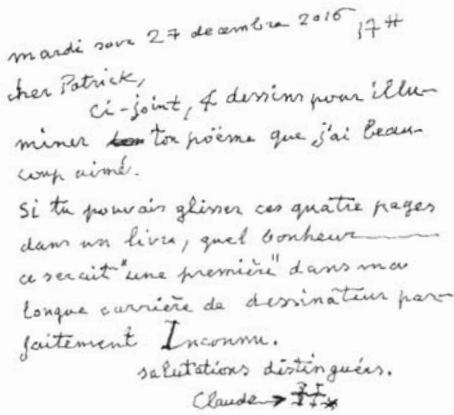 mardi soir 27 decembre 2016 17H
cher Patrick,
Ci-joint, 4 dessins pour illu-
miner ton poëme que j'ai beau-
coup aimé.
Si tu pouvais glisser ces quatre pages
dans un livre, quel bonheur
ce serait "une première" dans ma
longue carrière de dessinateur par-
faitement Inconnu.
salutations distinguées.
Claude